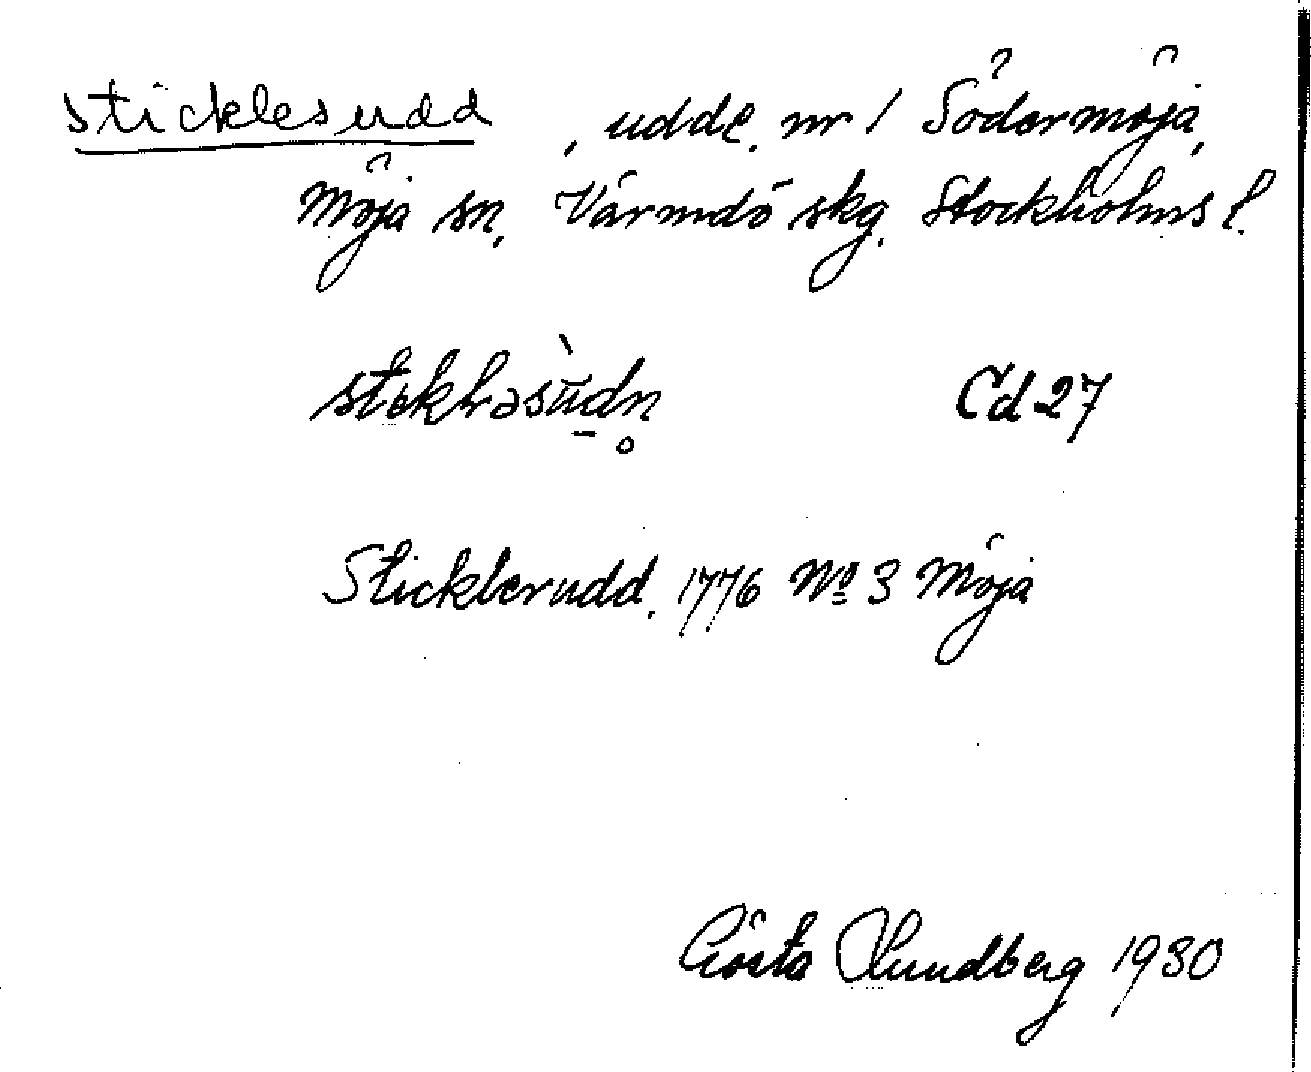 Sticklesudd, udde, nr 1 Södermöja,
Möja sn, Värmdö skg. Stockholms l.
Cd 27
Sticklerudd, 1776 No 3 Möja
Gösta Lundberg 1930